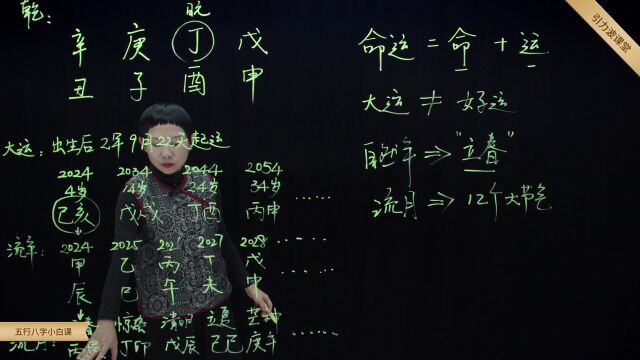 引力波课堂
乾: 晥
辛 庚 丁 戊
丑 子 酉 申
命运 = 命 + 运
大运 ≠ 好运
⇒ "立春"
流月 ⇒ 12个大节气
大运: 出生后 2年9月22天起运
2024 2034 2044 2054
4岁 14岁 24岁 34岁
己亥 戊戌 丁酉 丙申 ……
流年: 2024 2025 2027 2028 ……
甲 乙 丙 丁 戊
辰 巳 午 未 申 ……
惊蛰 清明 立夏 芒种
丁卯 戊辰 己巳 庚午 ……
五行八字小白课